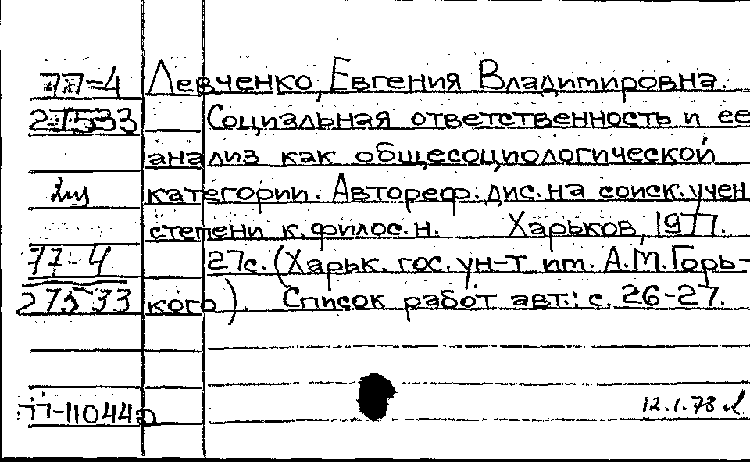 77-4 Левченко, Евгения Владимировна.
27533 Социальная ответственность и ее
анализ как общесоциологической
категории. Автореф. дис. на соиск. учен.
степени к. филос. н. Харьков, 1977.
77-4 27с. (Харьк. гос. ун-т им. А.М. Горь-
27533 кого). Список работ авт.: с. 26-27.
77-11044а
12.1.78